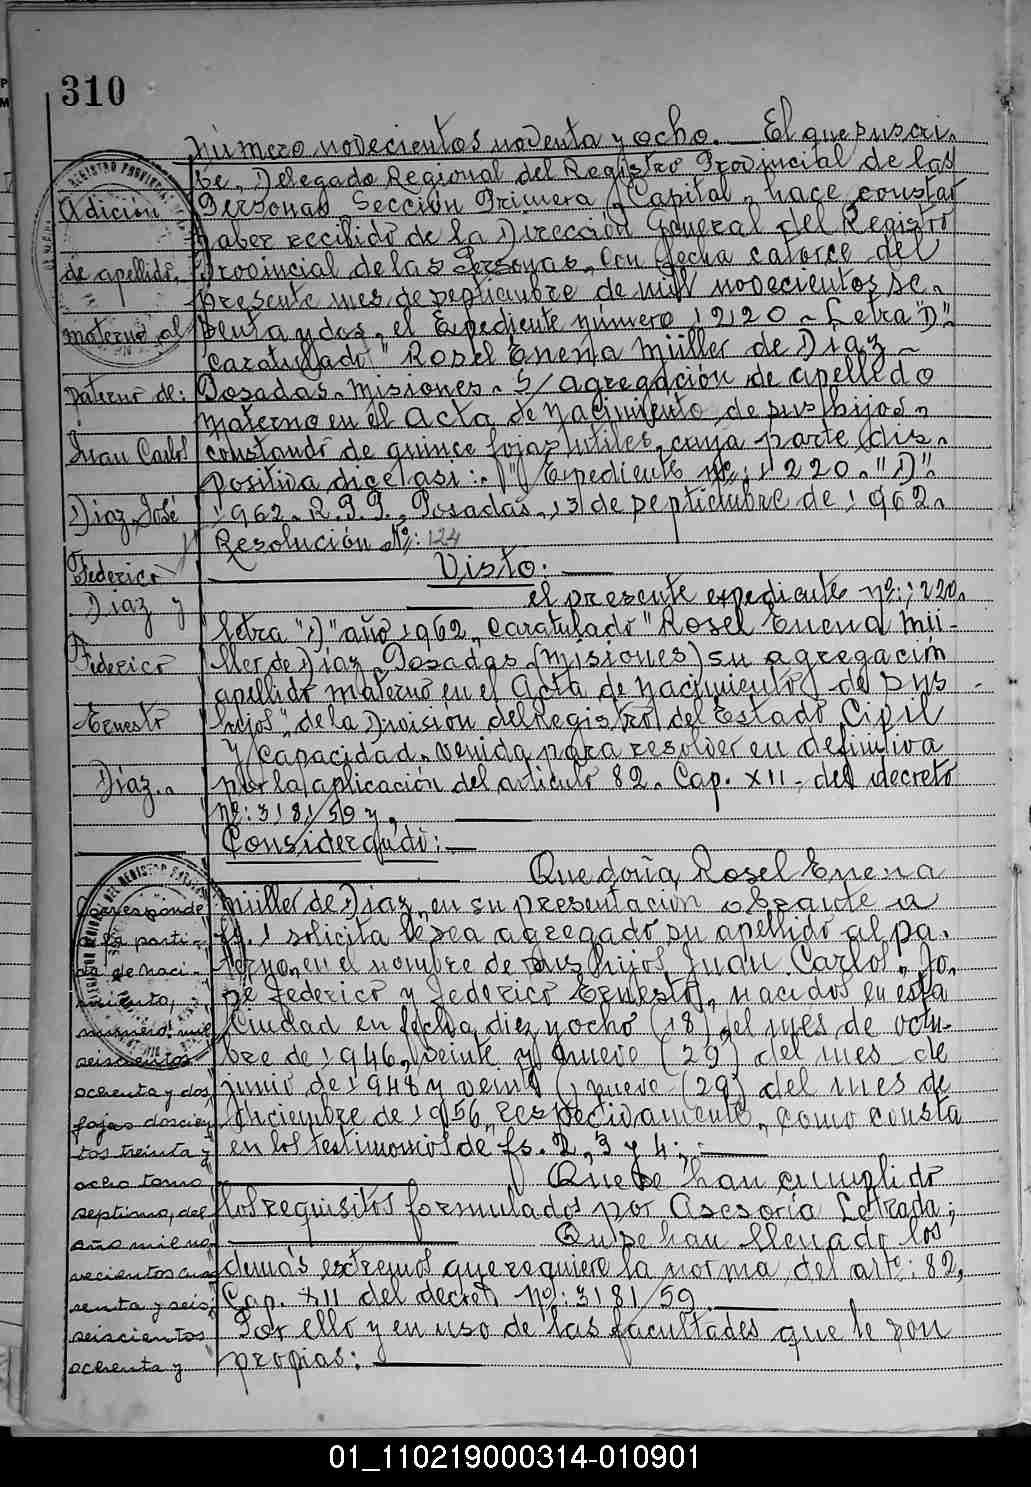 310
Número novecientos noventa y ocho. El que suscri-
be, Delegado Regional del Registro Provincial de las
Personas Sección Primera, Capital, hace constar
haber recibido de la Dirección General del Registro
Provincial de las Personas, con fecha catorce del
presente mes de septiembre de mil novecientos se-
senta y dos, el Expediente número 1220 - Letra "D"
caratulado "Rosel Enena Müller de Diaz -
Posadas - Misiones - S/ agregación de apellido
materno en el Acta de Nacimiento de sus hijos,
constando de quince fojas utiles, cuya parte dis-
positiva dice asi: "Expediente Nº: 1220. "D".
1962. R.P.P. Posadas, 13 de septiembre de 1962.
Resolución Nº: 124
Visto:
el presente expediente nº: 1220.
letra "D" año 1962, caratulado "Rosel Enena Mü-
ller de Diaz, Posadas (Misiones) su agregación
apellido materno en el Acta de nacimiento de sus
hijos", de la Division del Registro del Estado Civil
y Capacidad, venida para resolver en definitiva
por la aplicación del articulo 82. Cap. XII, del decreto
nº: 3181/59 y,
Considerando:
Que doña Rosel Enena
Müller de Diaz, en su presentacion obrante a
fs. 1 solicita le sea agregado su apellido al pa-
terno, en el nombre de sus hijos, Juan Carlos, Jo-
sé Federico y Federico Ernesto, nacidos en esta
Ciudad en fecha diez y ocho (18) del mes de octu-
bre de 1946, veinte y nueve (29) del mes de
junio de 1948 y veinte y nueve (29) del mes de
diciembre de 1956, respectivamente, como consta
en los testimonios de fs. 2, 3 y 4;
Que se han cumplido
los requisitos formulados por Asesoría Letrada;
Que se han llenado los
demás extremos que requiere la norma del arte: 82,
Cap. XII del decreto Nº: 3181/59.
Por ello y en uso de las facultades que le son
propias:
Adición
de apellido
materno al
paterno de:
Juan Carlos
Diaz, José
Federico
Diaz y
Federico
Ernesto
Diaz.
Corresponde
a la parti-
da de naci-
miento,
número: mil
seiscientos
ochenta y dos,
fojas doscien
tos treinta y
ocho tomo
septimo, del
año mil no-
vecientos cua
renta y seis;
seiscientos
ochenta y
01_110219000314-010901